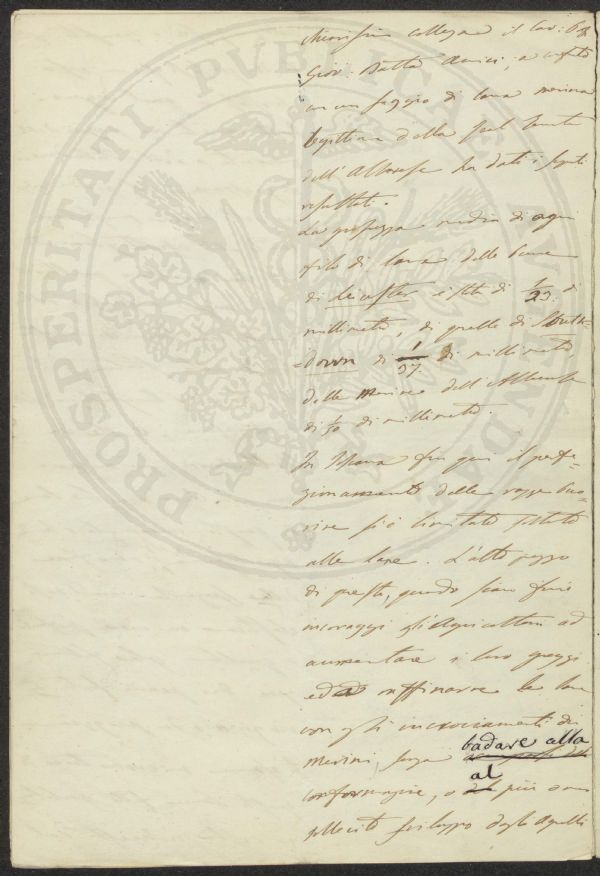 chiarissimo collega il Cav:
Giov: Batta Amici, e
in un saggio di lana merina
della
dell'Alberese ha dati i seguenti
resultati.
La grossezza media di ogni
filo di lana delle
di Leicester è stata di 1/23. di
millimetro, di quelle di South-
=down di 1/37. di millimetro
delle Merine dell'Alberese
di 1/50 di millimetro.
In fin qui il perfe-
zionamento delle razze
rine si è limitato soltanto
alle lane. L'alto prezzo
di queste, quando siano fine
incoraggì gli Agricoltori ad
aumentare i loro greggi
ed affinarne le lane
con gli incrociamenti di
Merini, senza badare alla
conformazione, o al più o meno
sollecito sviluppo degli Agnelli
PROSPERITATI PUBLICAE AUGENDAE